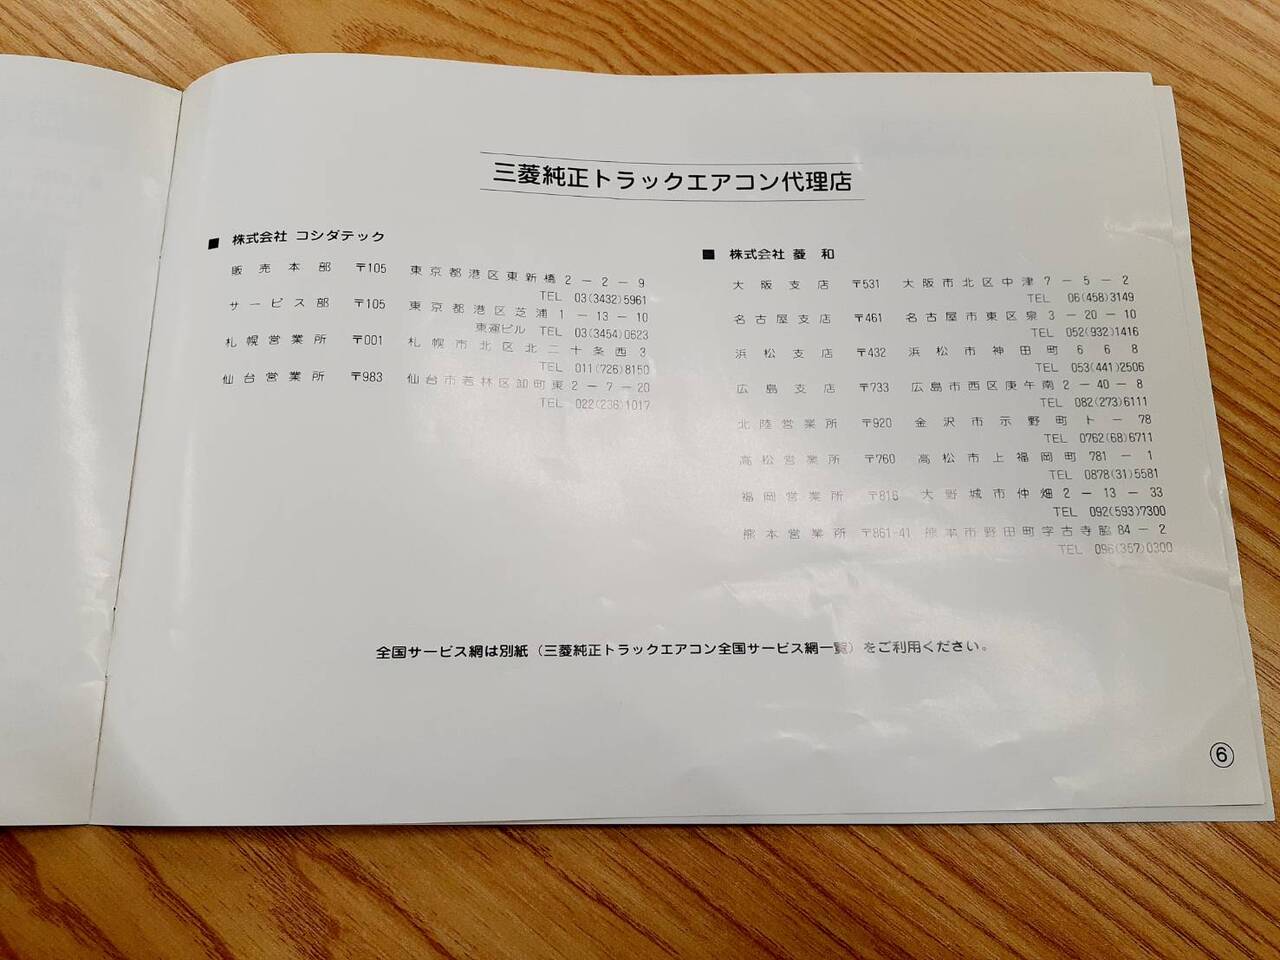 三菱純正トラックエアコン代理店
■ 株式会社 コシダテック
販売本部 〒105 東京都港区東新橋2－2－9
TEL 03(3432)5961
サービス部 〒105 東京都港区芝浦1－13－10
東運ビル TEL 03(3454)0623
札幌営業所 〒001 札幌市北区北二十条西3
TEL 011(726)8150
仙台営業所 〒983 仙台市若林区卸町東2－7－20
TEL 022(236)1017
■ 株式会社 菱和
大阪支店 〒531 大阪市北区中津7－5－2
TEL 06(458)3149
名古屋支店 〒461 名古屋市東区泉3－20－10
TEL 052(932)1416
浜松支店 〒432 浜松市神田町668
TEL 053(441)2506
広島支店 〒733 広島市西区庚午南2－40－8
TEL 082(273)6111
北陸営業所 〒920 金沢市示野町ト－78
TEL 0762(68)6711
高松営業所 〒760 高松市上福岡町781－1
TEL 0878(31)5581
福岡営業所 〒816 大野城市仲畑2－13－33
TEL 092(593)7300
熊本営業所 〒861-41 熊本市野田町字古寺脇84－2
TEL 096(357)0300
全国サービス網は別紙（三菱純正トラックエアコン全国サービス網一覧）をご利用ください。
⑥